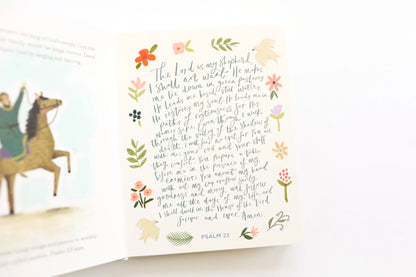 The Lord is my shepherd,
I shall not want. He makes
me lie down in green pastures
He leads me beside still waters.
He restores my soul. He leads me in
paths of righteousness for His
name's sake. Even though I walk
through the valley of the shadow of
death, I will fear no evil, for You are
with me, your rod and your staff
they comfort. You prepare a table
before me in the presence of my
enemies; You anoint my head
with oil my cup overflows surely
goodness and mercy will follow
me all the days of my life, and
I shall dwell in the House of the Lord
forever and ever. Amen.
PSALM 23